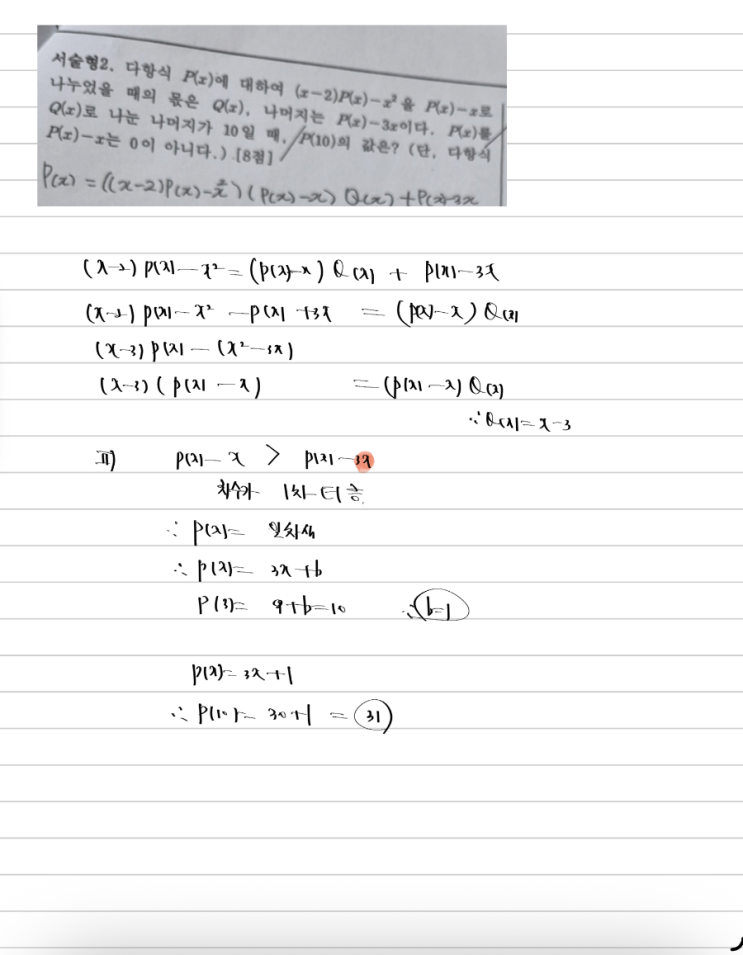 서술형2. 다항식 P(x)에 대하여 (x-2)P(x)-x²을 P(x)-x로
나누었을 때의 몫은 Q(x), 나머지는 P(x)-3x이다. P(x)를
Q(x)로 나눈 나머지가 10일 때, P(10)의 값은? (단, 다항식
P(x)-x는 0이 아니다.) [8점]
P(x) = ((x-2)P(x)-x²)(P(x)-x) Q(x)+P(x)-3x
(x-2) P(x) - x² = (P(x)-x) Q(x) + P(x)-3x
(x-2) P(x) - x² - P(x) +3x = (P(x)-x) Q(x)
(x-3) P(x) - (x²-3x)
(x-3) (P(x) - x) = (P(x)-x) Q(x)
∵ Q(x) = x-3
P(x) - x > P(x) - 3x
차수가 1차 더
∴ P(x) = 일차식
∴ P(x) = 3x+b
P(3) = 9+b=10 ∴ b=1
P(x) = 3x+1
∴ P(10) = 30+1 = 31